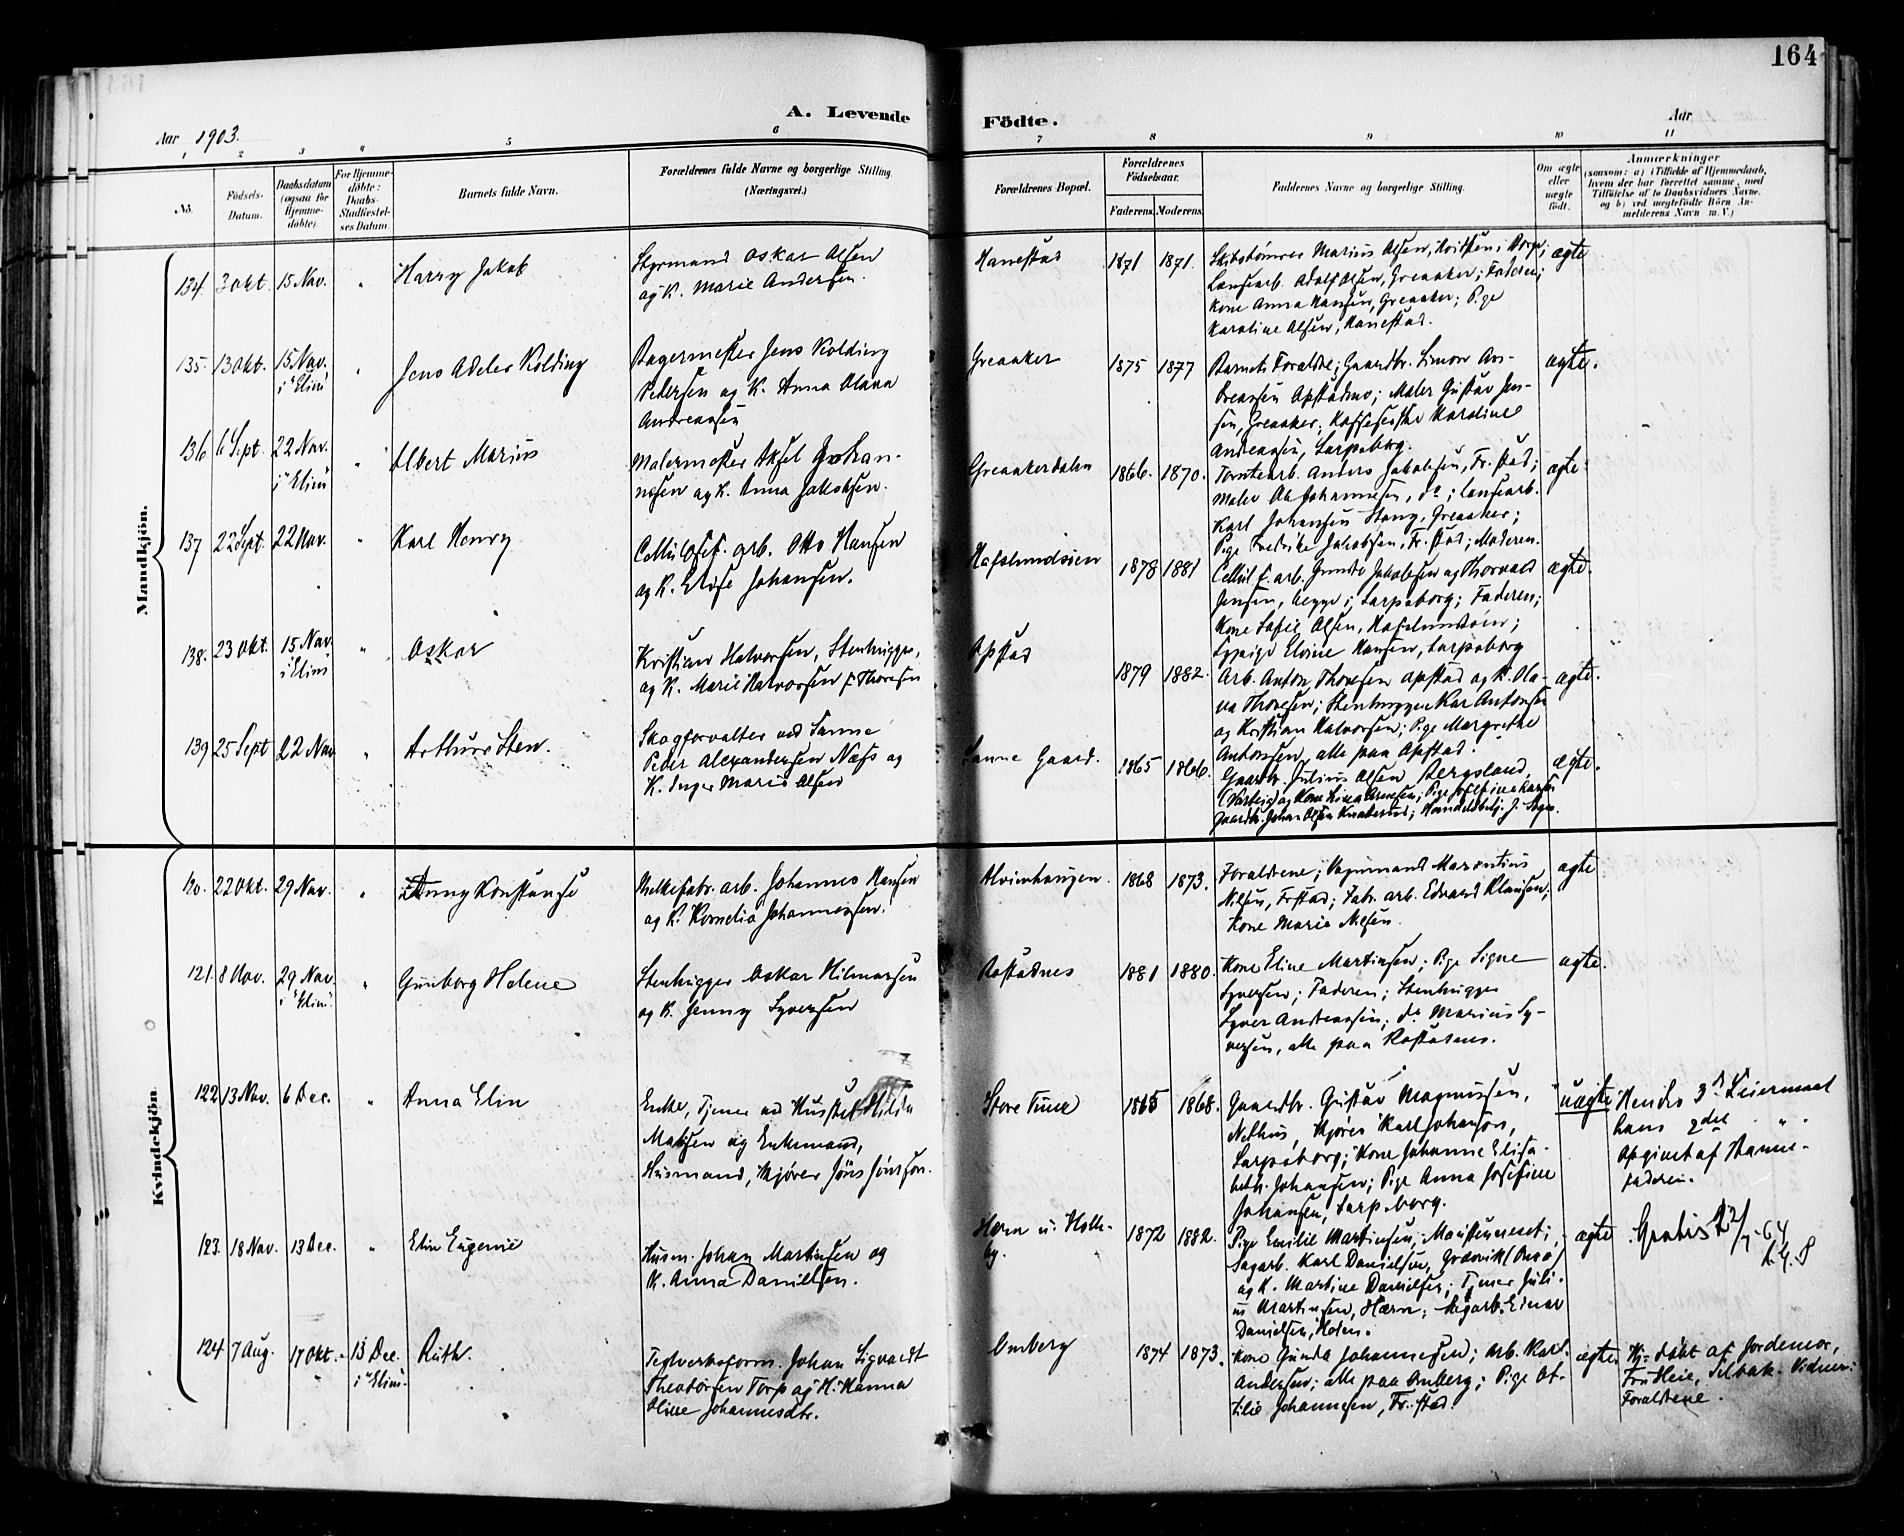 164
A. Levende Födte.
Aar 1903.
Aar
1 2 3 4 5 6 7 8 9 10 11
No.
Födsels-Datum.
Daabsdatum (ogsaa for Hjemmedöbte)
For Hjemmedöbte: Daabs-Stadfæstelses Datum.
Barnets fulde Navn.
Forældrenes fulde Navne og borgerlige Stilling. (Næringsvei.)
Forældrenes Bopæl.
Forældrenes Födselsaar.
Faderens. Moderens.
Faddernes Navne og borgerlige Stilling.
Om ægte eller uægte födt.
Anmærkninger
(saasom: a) i Tilfælde af Hjemmedaab, hvem der har forrettet samme, med Tilföielse af to Daabsvidners Navne, og b) ved uægtefödte Börn Anmelderens Navn m. V.)
Mandkjön.
134. 3 Okt. 15 Nov. " Harry Jakob
Styrmand Oskar Olsen
og K. Marie Andersen.
Hanestad 1871 1871.
Skibstömrer Marius Olsen, Hvidsten i Borge;
Lænsearb. Adolf Olsen, Greaaker; Faderen;
Kone Anna Hansen, Greaaker; Pige
Karoline Olsen, Hanestad.
ægte
135. 13 Okt. 15 Nov. i "Elim" " Jens Adeler Kolding
Bagermester Jens Kolding
Pedersen og K. Anna Olava
Andreassen
Greaaker 1875 1877
Barnets Forældre; Gaardbr. Simon An-
dreassen Opstadmo; Maler Gustav Jen-
sen, Greaaker; Kaffevertske Kardine
Andreassen, Sarpsborg.
ægte.
136 6 Sept 22 Nov. i "Elim" " Albert Marius
Malermester Aksel Johan-
nesen og K. Anna Jakobsen.
Greaakerdalen 1866. 1870.
Tomtearb. Anders Jakobsen, Fr.stad;
Maler Ole Johannesen, do; Lænsearb.
Karl Johansen Stang, Greaaker;
Pige Fredrikke Jakobsen, Fr.stad; Moderen.
ægte
137 22 Sept. 22 Nov. " Karl Henry
Cellulosef. arb. Otto Hansen
og K. Elise Johansen.
Hafslundsöen 1878 1881
Cellul f. arb. Gunda Jakobsen og Thorvald
Jensen, begge i Sarpsborg; Faderen;
Kone Sofie Olsen, Hafslundsöen;
Sypige Elvine Hansen, Sarpsborg
ægte.
138. 23 Okt. 15 Nov. i Elim " Oskar
Kristian Halvorsen, Stenhugger,
og K. Marie Halvorsen f. Thoresen
Opstad 1879 1882.
Arb. Anton Thoresen Opstad og K. Ola-
va Thoresen; Stenhugger Kar Antonsen
og Kristian Halvorsen; Pige Margrethe
Antonsen, alle paa Opstad.
ægte.
139 25 Sept 22 Nov " Arthur Sten.
Skogforvalter ved Sanne
Peder Alexandersen Næss og
K. Inger Marie Olsen
Sanne Gaard. 1865 1866.
Gaardbr. Julius Olsen Bergsland
(Varteig) og Kone Lina Arnesen; Pige Josefine Karlsen
Gaardbr. Johan Olsen
ægte.
Kvindekjön
120. 22 Okt. 29 Nov. " Anny Konstanse
Melkefabr. arb. Johannes Hansen
og K. Kornelia Johannessen.
Alvimhaugen. 1868 1873.
Forældrene; Vognmand Marentius
Nilsen, Frstad; Fabr. arb. Edvard Klausen;
Kone Marie Nilsen.
ægte
121. 8 Nov. 29 Nov i "Elim". " Gunborg Helene
Stenhugger Oskar Hilmarsen
og K. Jenny Syversen
Rostadnes 1881 1880.
Kone Eline Martinsen; Pige Signe
Syversen; Faderen; Stenhugger
Syver Andreassen; do Marius Sy-
versen, alle paa Rostadnes.
ægte.
122 13 Nov. 6 Dec. " Anna Elin
Enke, Tjener ved Huset Hilda
Madsen og Enkemand,
Husmand, Kjörer Jöns Jönsson.
Store Tune 1865 1868.
Gaardbr. Gustav Magnussen,
Nethus, Kjörer Karl Johansen,
Sarpsborg; Kone Johanne Elisa-
beth Johansen; Pige Anna Josefine
Johansen, Sarpsborg.
uægte
Hendes 3die Leiermaal
hans 2det " .
Opgivet af Barne-
faderen.
123. 18 Nov. 13 Dec. " Elin Eugenie
Husm. Johan Martinsen og
K. Anna Danielsen.
1872 1882.
Pige Emilie Martinsen,
Sagarb. Karl Danielsen,
og K. Martine Danielsen; Tjener Juli-
us Martinsen, Hærn; Sagarb. Einar
Danielsen, Holen.
ægte
Gratis 22/7-64
124 7 Aug. 17 Okt. 13 Dec. i "Elim". Ruth.
Teglverksform. Johan Sigvardt
Theodorsen Torp og K. Hanna
Oline Johannesdtr.
Omberg 1874 1873.
Kone Gunda Johannesen; Arb. Karl
Andersen; alle paa Omberg; Pige Ot-
tilie Johannesen, Fr.stad.
ægte
Hj-döbt af Jordemor,
Fru Heie, Selbak. Vidner:
Forældrene.